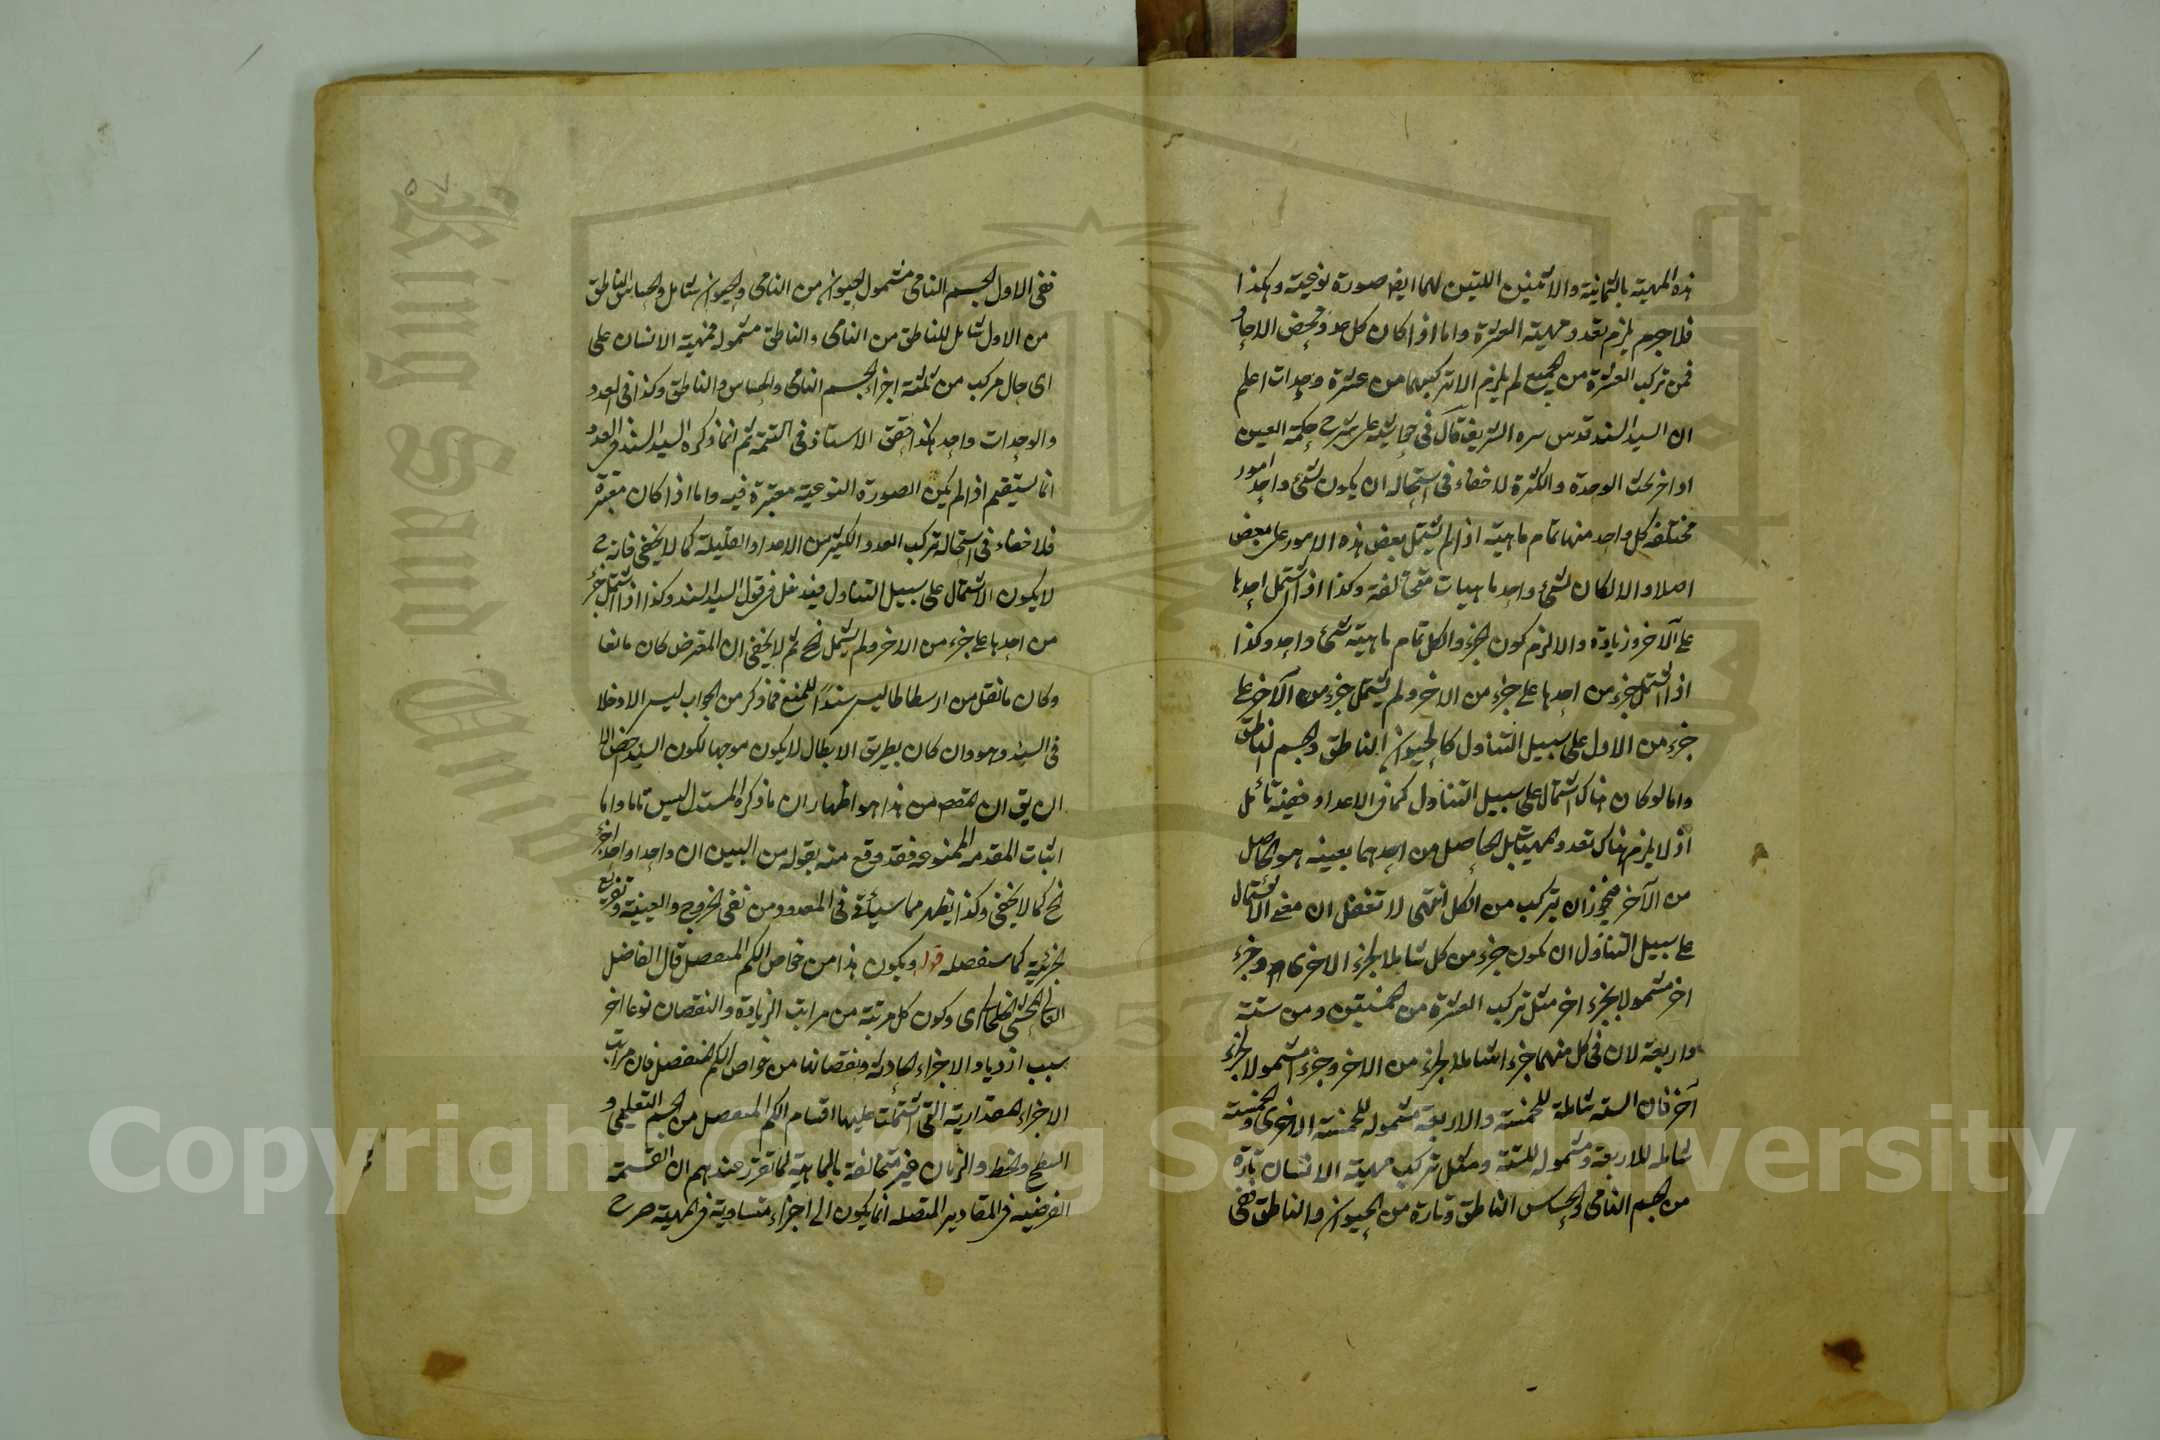 هذه المهية بالثمانية والاثنين اللتين لهما ايضا صورة نوعية وهكذا
فلا جرم يلزم تعدد مهية العشرة واما اذا كان كل عدد محض الاحاد
فمن تركب العشرة من الجميع لم يلزم الا تركبها من عشرة وحدات اعلم
ان السيد السند قدس سره الشريف قال في حاشيته على شرح حكمة العين
اواخر بحث الوحدة والكثرة لا خفاء في استحالة ان يكون لشئ واحد امور
مختلفة كل واحد منها تمام ماهيته اذا لم يشتمل بعض هذه الامور على بعض
اصلا والا لكان لشئ واحد ماهيات متخالفة وكذا اذا اشتمل احدها
على الآخر وزيادة والا لزم كون الجزء والكل تمام ماهية شئ واحد وكذا
اذا اشتمل جزء من احدها على جزء من الاخر ولم يشتمل جزء من الآخر على
جزء من الاول على سبيل التناول كالحيوان الناطق والجسم الناطق
واما لو كان هناك اشتمال على سبيل التناول كما في الاعداد ففيه تأمل
اذ لا يلزم هناك تعدد المهية بل الحاصل من احدهما بعينه هو الحاصل
من الآخر فيجوز ان يتركب من الكل انتهى لا تغفل ان معنى الاشتمال
على سبيل التناول ان يكون جزء من كل شاملا لجزء الاخرى وجزء
اخر مشمولا لجزء اخر مثل تركب العشرة من خمستين ومن ستة
واربعة لان في كل منهما جزءا شاملا لجزء من الاخر وجزء مشمولا لجزء
آخر فان الستة شاملة للخمسة والاربعة مشمولة للخمسة الاخرى والخمسة
شاملة للاربعة ومشمولة للستة ومثل تركب مهية الانسان تارة
من الجسم النامى والحساس الناطق وتارة من الحيوان والناطق ففى
٥٧
ففى الاول الجسم النامى مشمول الحيوان من النامى والحيوان شامل والحساس الناطق
من الاول شامل للناطق من النامى والناطق مشموله فمهية الانسان على
اى حال مركب من ثلثة اجزاء الجسم النامى والحساس والناطق وكذا في العدد
والوحدات واحد هكذا حقق الاستاذ في التتمة ثم انما ذكره السيد السند في العدد
انما يستقيم اذا لم يكن الصورة النوعية معتبرة فيه واما اذا كان معتبرة
فلا خفاء في استحالة تركب العدد الكثير من الاعداد القليلة كما لا يخفى فانه ح
لا يكون الاشتمال على سبيل التناول فيدخل في قول السيد السند وكذا اذا اشتمل جزء
من احدها على جزء من الاخر ولم يشتمل الخ ثم لا يخفى ان المعترض كان مانعا
وكان ما نقل من ارسطاطاليس سندا للمنع فما ذكر من الجواب ليس الا دخلا
في السند وهو وان كان بطريق الابطال لا يكون موجها لكون السند اخص الا
ان يق ان المقصد من هذا هو اظهار ان ما ذكره المستدل ليس تاما واما
اثبات المقدمة الممنوعة فقد وقع منه بقوله من البين ان واحدا واحدا جزء
الخ كما لا يخفى وكذا يظهر مما سيأتى في المعدود من نفى الخروج والعينية وتفريع
الجزئية كما سنفصله قوله ويكون هذا من خواص الكم المنفصل قال الفاضل
المحشى الخلخالى اى وكون كل مرتبة من مراتب الزيادة والنقصان نوعا اخر
بسبب ازدياد الاجزاء العادلة ونقصانها من خواص الكم المنفصل فان مراتب
الاجزاء المقدارية التى اشتملت عليها اقسام الكم المتصل من الجسم التعليمى و
السطح والخط والزمان غير متخالفة بالماهية لما تقرر عندهم ان القسمة
الفرضية في المقادير المتصلة انما يكون الى اجزاء متساوية في المهية صرح
King Saud University
1957
Copyright © King Saud University